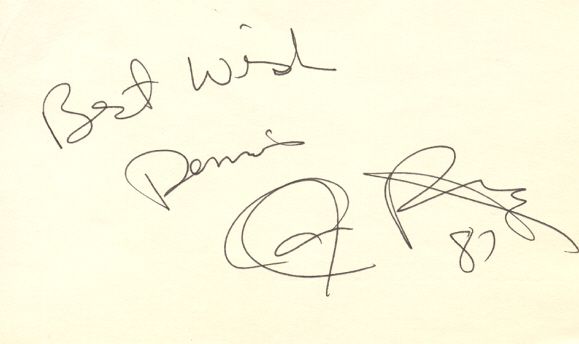 Best Wish
Dennis
87